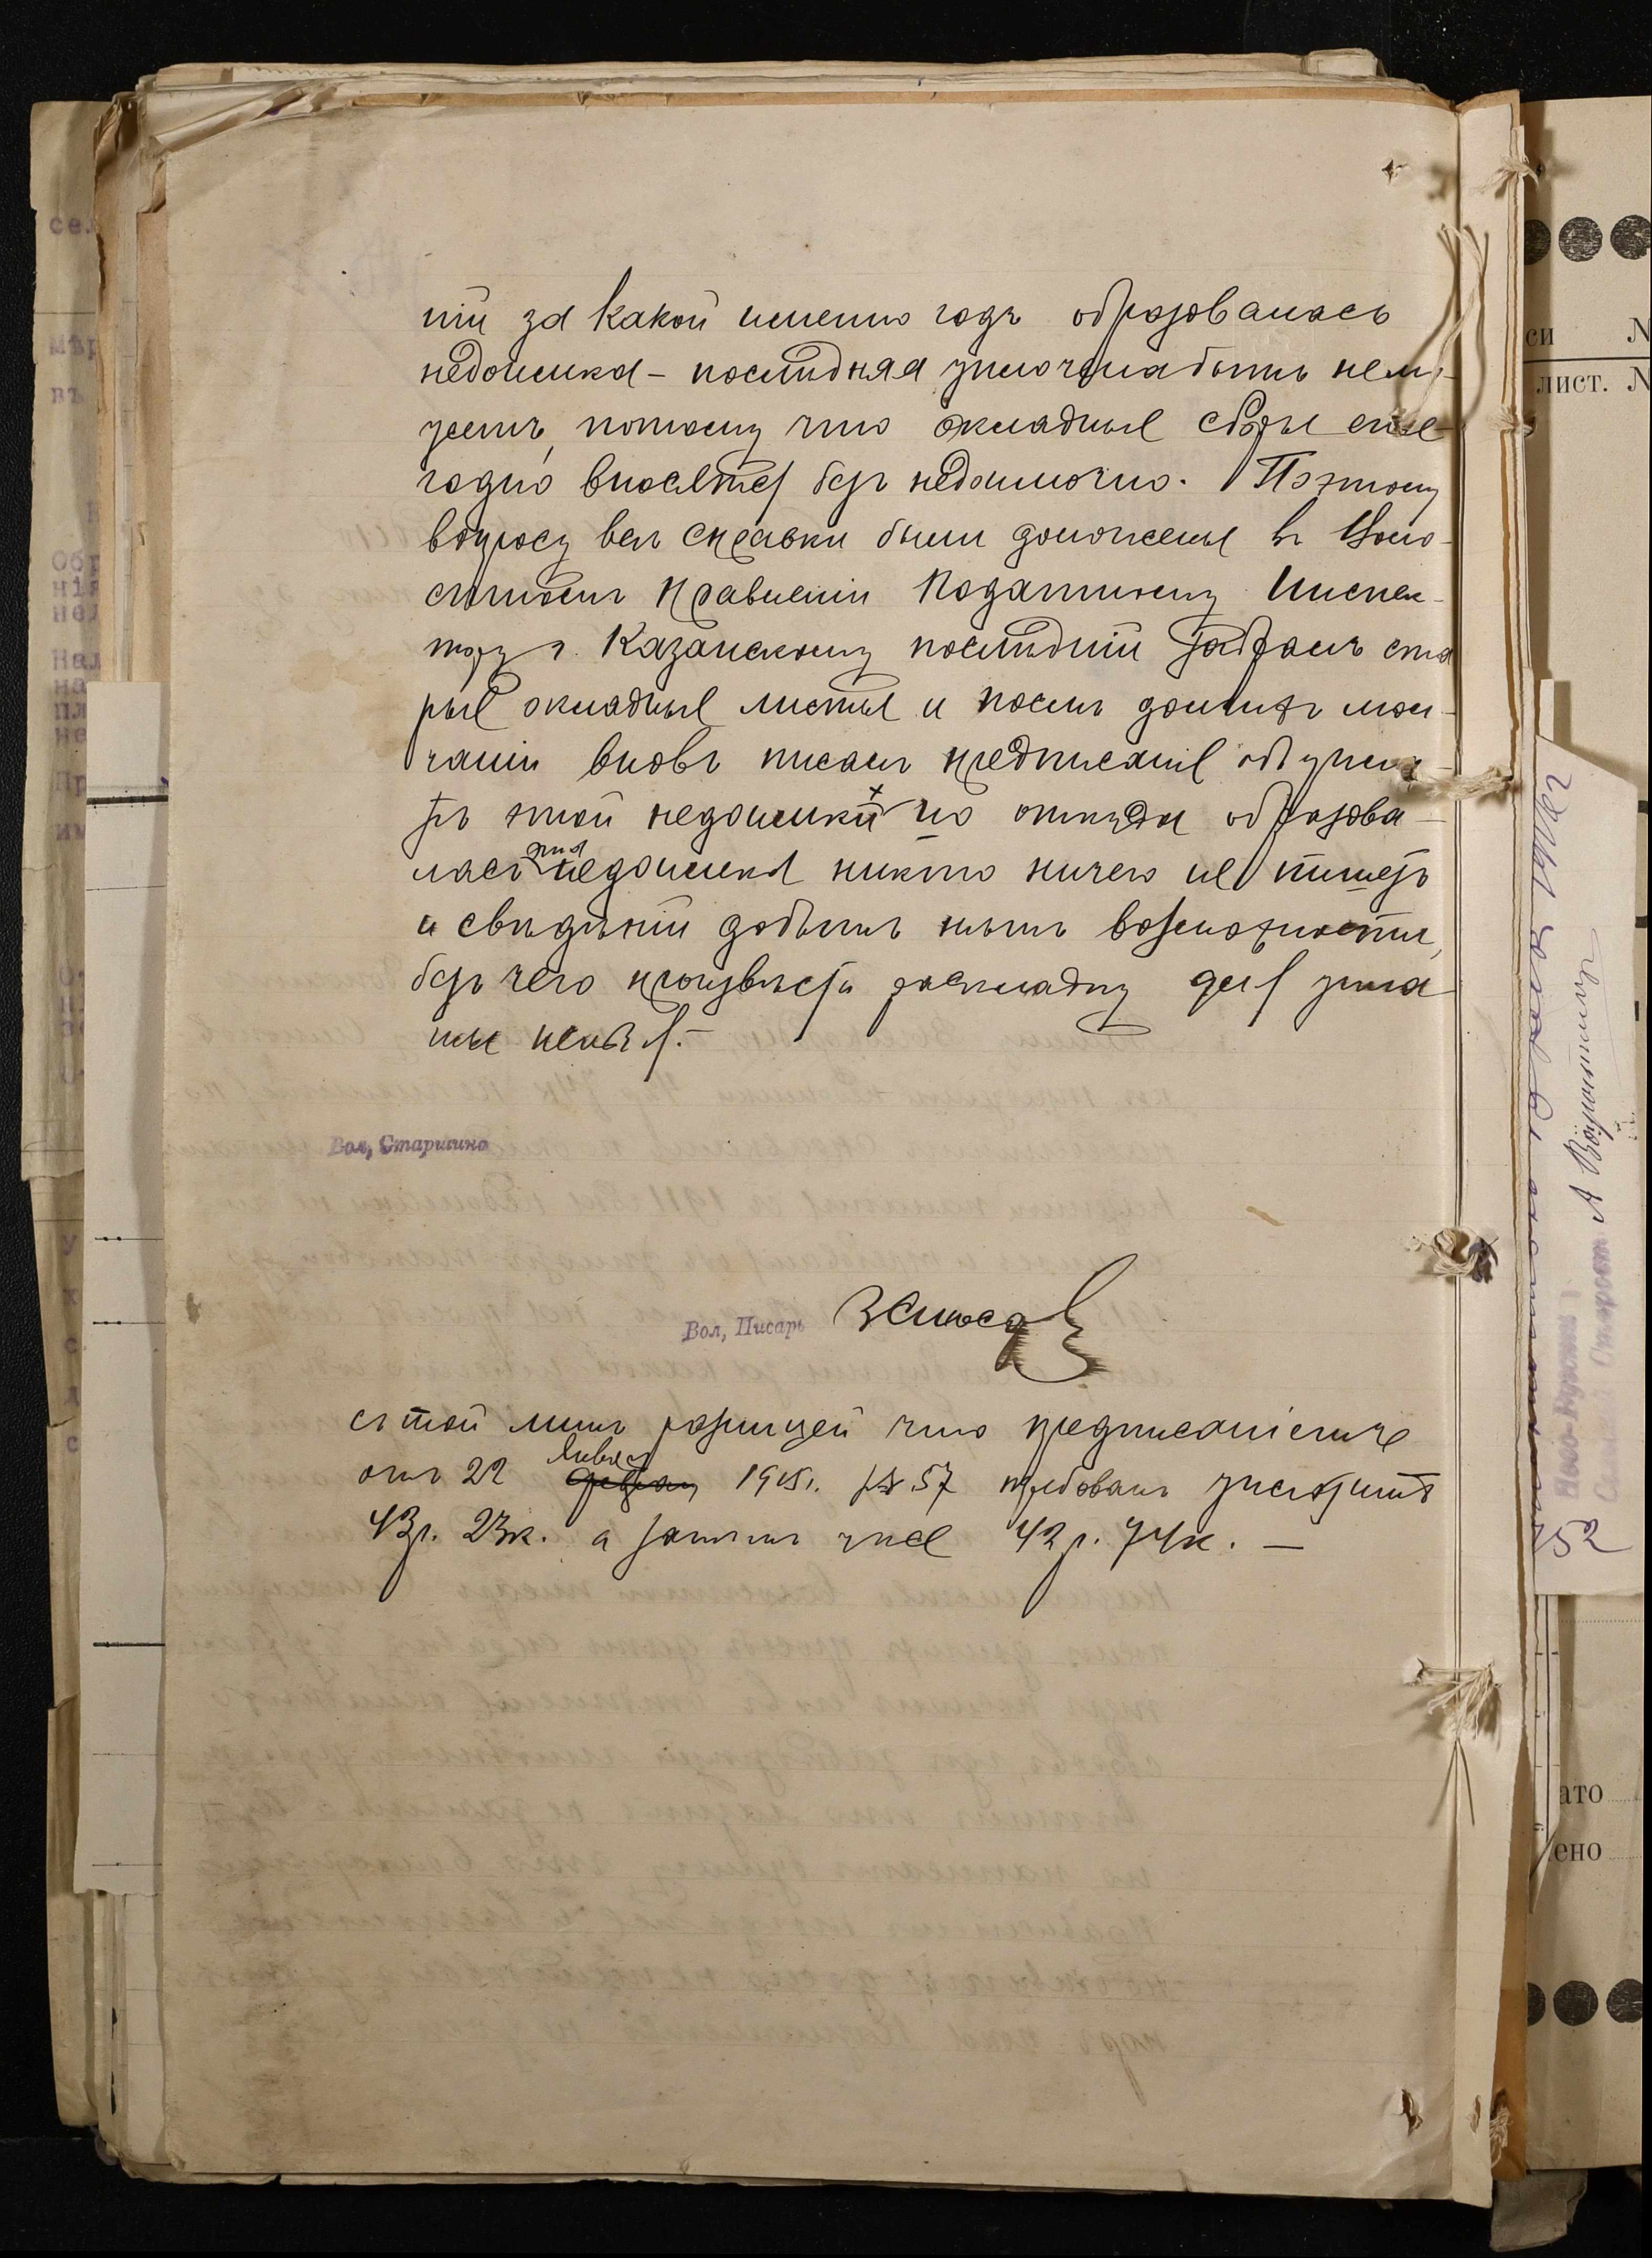 ній за какой именно годъ образовалась
недоимка - послѣдняя уплочена быть не мо-
жетъ, потому что окладные сборы еже-
годно вносятся безъ недоимочно. По этому
вопросу всѣ справки были доложены въ Воло-
стномъ Правленіи Податному Инспек-
тору г. Казанскому послѣдній забралъ ста
рые окладные листы и послѣ долгихъ мол-
чаній вновь писалъ предписаніе объ упла-
тѣ этой недоимки + но откуда образова-
лась эта недоимка никто ничего не пишетъ
и свѣдѣній добыть нѣтъ возможности,
безъ чего произвести раскладку для упла
ты нельзя.-
Вол, Старшина
Вол, Писарь
съ той лишь разницей что предписаніемъ
отъ 22 Января 1915г. № 57 требовалъ уплотить
43р. 23к. а затѣмъ уже 42 р. 74к. —
сел
мѣр
въ
Обр
нія
нед
Нал
на
пл
не
Пр
им
у
к
с
д
с
си №
лист. №
Сел. Старост
52
ато
ено